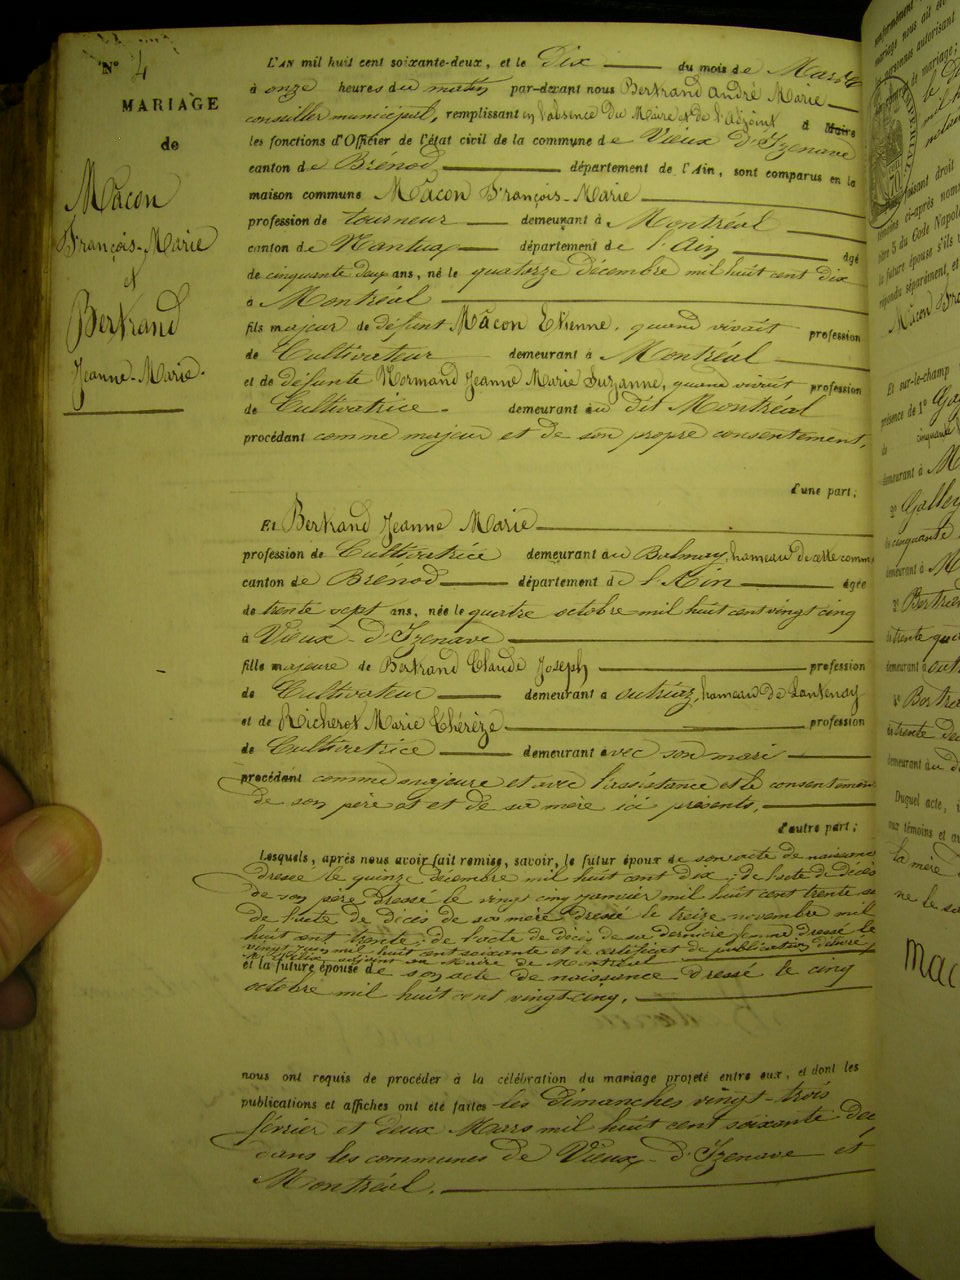 N° 4
MARIAGE
de
Mâcon
François-Marie
et
Bertrand
Jeanne-Marie.
L'AN mil huit cent soixante-deux, et le Dix du mois de Mars
à onze heures du matin par-devant nous Bertrand André Marie
conseiller municipal, remplissant en l'absence du Maire et de l'Adjoint à Maire
les fonctions d'Officier de l'état civil de la commune de Vieux d'Izenave
canton de Brénod département de l'Ain, sont comparus en la
maison commune Mâcon François-Marie
profession de tourneur demeurant à Montréal
canton de Nantua département de l'Ain âgé
de cinquante deux ans, né le quatorze décembre mil huit cent dix
à Montréal
fils majeur de défunt Mâcon Etienne, quand vivait profession
de Cultivateur demeurant à Montréal
et de défunte Normand Jeanne Marie Suzanne, quand vivait profession
de Cultivatrice. demeurant au dit Montréal
procédant comme majeur et de son propre consentement,
d'une part;
Et Bertrand Jeanne Marie
profession de Cultivatrice demeurant au Balmay, hameau de cette comm
canton de Brénod département de l'Ain âgée
de trente sept ans, née le quatre octobre mil huit cent vingt cinq
à Vieux-d'Izenave
fille majeure de Bertrand Claude Joseph profession
de Cultivateur demeurant à outriaz, hameau de Lantenay
et de Richerot Marie Thérèze profession
de Cultivatrice demeurant avec son mari
procédant comme majeure et avec l'assistance et le consentement
de son père et et de sa mère ici présents,
d'autre part;
Lesquels, après nous avoir fait remise, savoir, le futur époux de son acte de naissance
dressé le quinze décembre mil huit cent dix; de l'acte de décès
de son père dressé le vingt cinq janvier mil huit cent trente
de l'acte de décès de sa mère dressé le treize novembre mil
huit cent trente; de l'acte de décès de sa dernière femme dressé le
vingt mil huit cent soixante et ce certificat de publication délivré
adjoint au Maire de Montréal
et la future épouse de son acte de naissance dressé le cinq
octobre mil huit cent vingt cinq.
nous ont requis de procéder à la célébration du mariage projeté entre eux, et dont les
publications et affiches ont été faites les dimanches vingt-trois
février et deux Mars mil huit cent soixante deu
dans les communes de Vieux-d'Izenave et
Montréal.
mariage nous ait été
personnes autorisant
de mariage;
faisant droit
témoins ci-après nom
titre 5 du Code Napol
la future épouse s'ils
répondu séparément, et
Mâcon Fra
Et sur-le-champ
présence de 1° Ga
de cinquante
demeurant à M
2° Galley
de cinquante
demeurant à M
3° Bertra
de trente qua
demeurant à outr
4° Bertra
de trente deu
demeurant au d
Duquel acte,
aux témoins et au
la mère
ne le sa
Mac